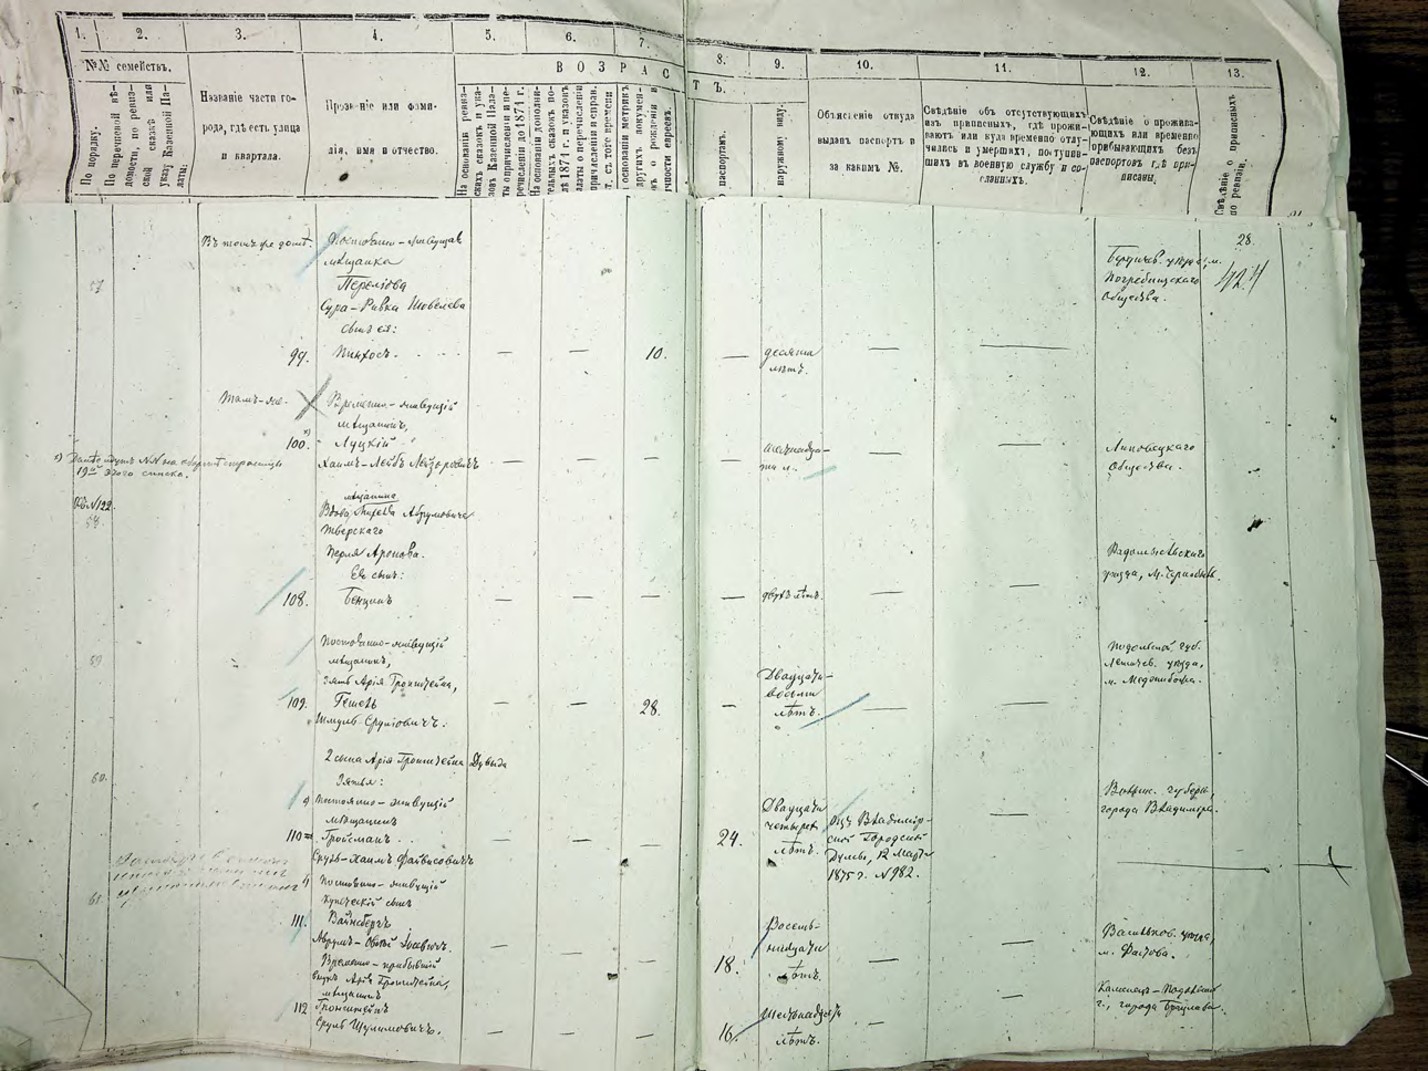 1. 2. 3. 4. 5. 6. 7. 8. 9. 10. 11. 12. 13.
№№ семействъ.
По порядку.
По перечневой вѣ-
домости, по ревиз-
ской сказкѣ или
указу Казенной Па-
латы.
Названіе части го-
рода, гдѣ есть улица
и квартала.
Прозваніе или фами-
лія, имя и отчество.
ВОЗРАСТЪ.
На основаніи ревиз-
скихъ сказокъ и ука-
зовъ Казенной Пала-
ты о причисленіи и пе-
речисленіи до 1874 г.
На основаніи дополни-
тельныхъ сказокъ по-
слѣ 1874 г. и указовъ
палаты о перечисленіи
и причисленіи и справ.
съ того времени
основаніи метрикъ
другихъ докумен-
о рожденіи и
личности евреевъ.
паспортамъ.
наружному виду.
Объясненіе откуда
выданъ паспортъ и
за какимъ №.
Свѣдѣніе объ отсутствующихъ
изъ приписныхъ, гдѣ прожи-
ваютъ или куда временно отлу-
чились и умершихъ, поступив-
шихъ въ военную службу и со-
сланныхъ.
Свѣдѣніе о прожива-
ющихъ или временно
прибывающихъ безъ
паспортовъ гдѣ при-
писаны.
Свѣдѣніе о приписныхъ
по ревизіи.
28.
57
Въ томъ же домѣ.
Постоянно-живущая
мѣщанка
Сура-Ривка
сынъ ея:
Бердичев. уѣзда, м.
Погребищскаго
Общества.
99. Пинхосъ. — — 10. — десяти — —
лѣтъ.
Тамъ-же.
Временно-живущій
мѣщанинъ,
100. Луцкій
Хаимъ-Лейбъ Лейзоровичъ
Липовецкаго
Общества.
19й этого списка.
Об. №122.
58.
мѣщанина
Вдова Абрумовича
Тверскаго
Перля Аронова.
Ея сынъ:
108. Бенціонъ — — — — двухъ лѣтъ. — —
Радомысльскаго
уѣзда, м. Чернобыль.
59
Постоянно-живущій
мѣщанинъ,
зять Арія Гронштейна,
109. — — 28. — — —
Шмуль Сруліовичъ.
Двадцати-
восьми
лѣтъ.
Подольской губ.
Летичев. уѣзда,
м. Меджибожа.
60.
2 сына Арія Гронштейна Дувыда
Зятья:
Постоянно-живущій
мѣщанинъ
110 Гройсманъ — — — 24.
Сруль-Хаимъ Файвисовичъ
Двадцати
четырехъ
лѣтъ.
Изъ Владимір-
ской Городской
Думы, 12 Марта
1875 г. №982.
Волынс. губерн.,
города Владиміра.
61.
Постоянно-живущій
купеческій сынъ
111. Вайнсбергъ
Аврумъ-Овсей Іосевичъ. — — — 18.
Восемь-
надцати
лѣтъ.
Васильков. уѣзда,
м. Фастова.
Временно-прибывшій
внукъ Арія Гронштейна,
мѣщанинъ
112 Гронштейнъ
Сруль Шулимовичъ. — — — 16.
Шестнадцати
лѣтъ.
Каменецъ-Подольской
г., города Брацлава.